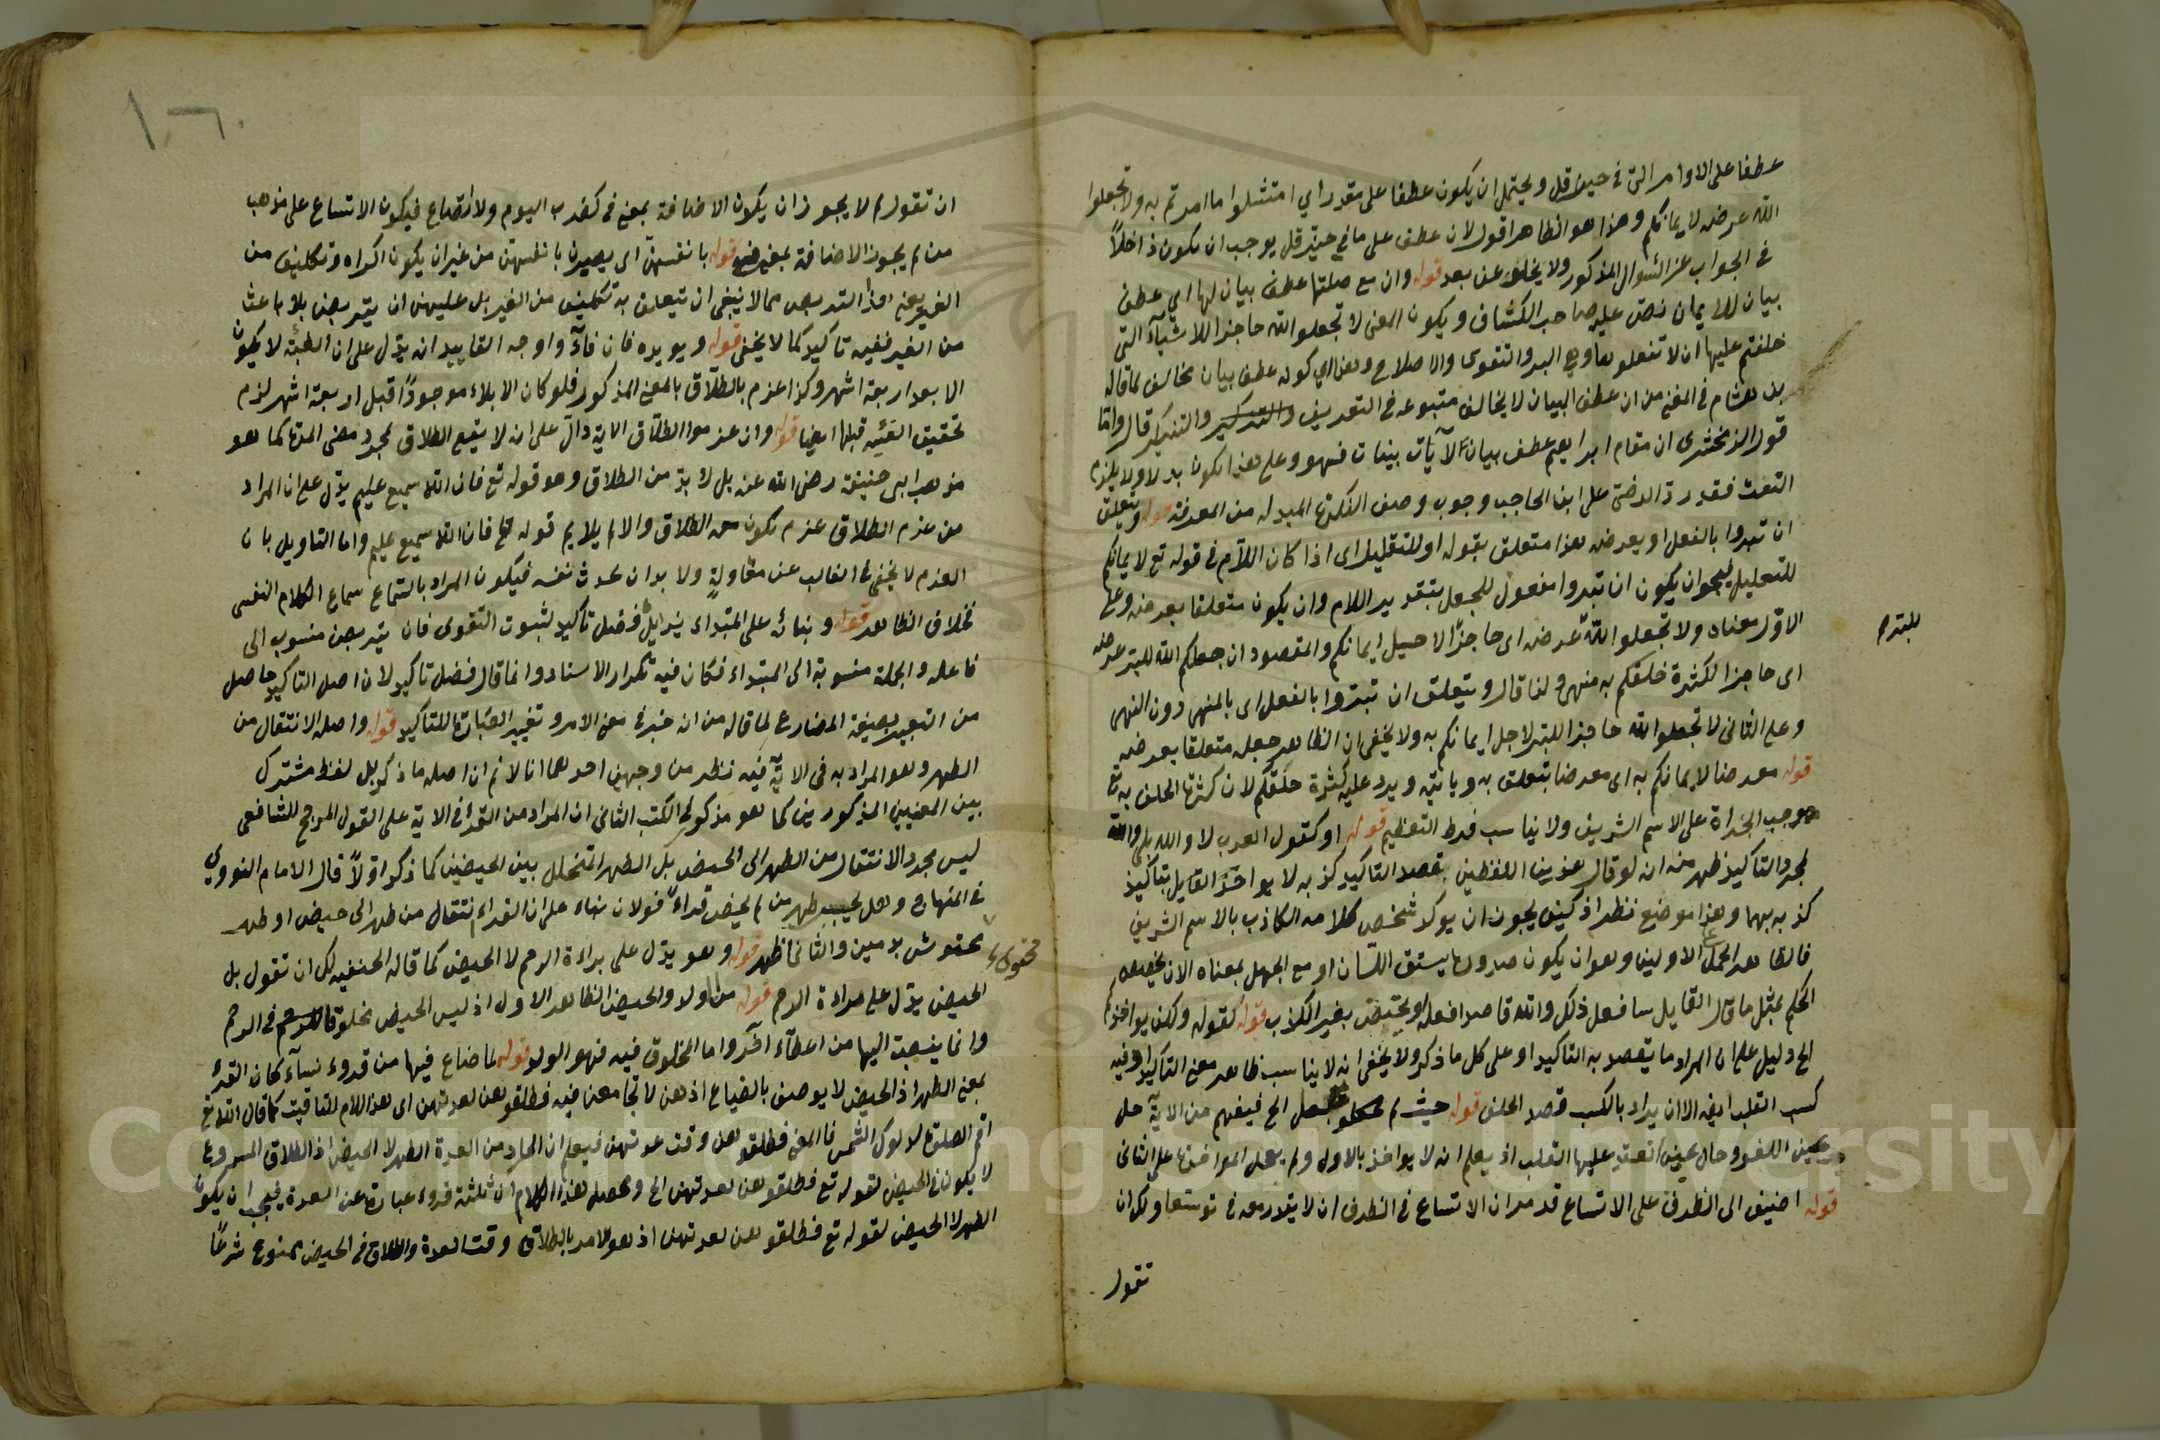 عطفا على الاوامر التي في حيز قل ويحتمل ان يكون عطفا على مقدر اي امتثلوا ما امرتم به ولا تجعلوا
الله عرضة لايمانكم وهذا هو الظاهر اقول لان عطف على ما في حيز قل يوجب ان يكون داخلاً
في الجواب عن السوال المذكور ولا يخلو عن بعد قوله وان مع صلتها عطف بيان لها اي عطف
بيان للايمان نص عليه صاحب الكشاف ويكون المعنى لا تجعلوا الله حاجزا للاشياء التي
حلفتم عليها ان لا تفعلوها وهي البر والتقوى والاصلاح وهذا اي كونه عطف بيان مخالف لما قاله
بن هشام في المغني من ان عطف البيان لا يخالف متبوعه في التعريف والتنكير قال واما
قول الزمخشري ان مقام ابراهيم عطف بيان لآيات بينات فسهو وعلى هذا يكون بدلا ولا يلزم
النعت فقد رد الرضي على ابن الحاجب وجوب وصف النكرة المبدلة من المعرفة قوله ويتعلق
ان تبروا بالفعل او بعرضة هذا متعلق بقوله او للتعليل اي اذا كان اللام في قوله تع لايمانكم
للتعليل فيجوز ان يكون ان تبروا مفعول للجعل بتقدير اللام وان يكون متعلقا بعرضة وعلى
الاول معناه ولا تجعلوا الله عرضة اي حاجزا لاجل ايمانكم والمقصود ان جعلكم الله للبر عرضة
للبتر م
اي حاجزا لكثرة حلفكم به منهي ولذا قال ويتعلق ان تبروا بالفعل اي بالمنهي دون النهي
وعلى الثاني لا تجعلوا الله حاجزا للبر لاجل ايمانكم به ولا يخفى ان الظاهر جعله متعلقا بعرضة
قوله معرضا لايمانكم به اي معرضا يتعلق به وياتيه ويرد عليه كثرة حلفكم لان كثرة الحلف به تع
يوجب الجراة على الاسم الشريف ولا يناسب فرط التعظيم قوله او كقول العرب لا والله بلى والله
لمجرد التاكيد ظهر منه ان لو قال هذين اللفظين بقصد التاكيد كذبه لا يواخذ القايل بتاكيد
كذبه بهما وهذا موضع نظر اذ كيف يجوز ان يوكد شخص كلامه الكاذب بالاسم الشريف
فالظاهر الحمل على الاولين وهو ان يكون صدورها يسبق اللسان او مع الجهل بمعناه الا ان يخصص
الحكم بمثل ما قال القايل سافعل ذلك والله قاصدا فعله ويختص بغير الكذب قوله كقوله ولكن يواخذكم
الخ دليل على ان المراد ما يقصد به التاكيد او على كل ما ذكر ولا يخفى انه لا يناسب ظاهر معنى التاكيد اذ فيه
كسب القلب ايضا الا ان يراد بالكسب قصد الحلف قوله حيث لم يعجل الخ فيفهم من الاية حل
يمين اللغو وحال يمين انعقد عليها القلب اذ يعلم ان لا يواخذ بالاول ولم يعجل المواخذة على الثاني
قوله اضيف الى الظرف على الاتساع قد مر ان الاتساع في الظرف ان لا يقدر معه في توسعا ولك ان
تقول
١٠٦
ان تقول لم لا يجوز ان يكون الاضافة بمعنى في كضرب اليوم ولا اتساع فيكون الاتساع على مذهب
من لم يجوز الاضافة بمعنى في قوله بانفسهن اي يصبرن بانفسهن من غير ان يكون اكراه وتكليف من
الغير يعني هذا التربص مما لا ينبغي ان يتعلق به تكليف من الغير بل عليهن ان يتربصن بلا باعث
من الغير ففيه تاكيد كما لا يخفى قوله ويويده فان فاؤا وجه التاييد انه يدل على ان الفيئة لا يكون
الا بعد اربعة اشهر وكذا عزم بالطلاق بالمعنى المذكور فلو كان الايلاء موجودًا قبل اربعة اشهر لزم
تحقيق الفيئه قبلها ايضا قوله وان عزموا الطلاق الاية دال على ان لا يقع الطلاق بمجرد مضي المدة كما هو
مذهب ابي حنيفة رضي الله عنه بل لا بد من الطلاق وهو قوله تع فان الله سميع عليم يدل على ان المراد
من عزم الطلاق عزم يكون معه الطلاق والا لم يلايم قوله تع فان الله سميع عليم واما التاويل بان
العزم لا يخفى في الغالب عن مقاولةٍ ولا بد ان يحدث نفسه فيكون المراد بالسماع سماع الكلام النفسي
خلاف الظاهر قوله وبناؤه على المبتداء يزيده فضل تاكيد لثبوت التقوى فان يتربصن منسوب الى
فاعله والجملة منسوبة الى المبتداء فكان فيه تكرار الاسناد وانما قال فضل تاكيد لان اصل التاكيد حاصل
من التعبير بصيغة المضارع لما قاله من ان خبر في معنى الامر وتغيير العبارة للتاكيد قوله واصله الانتقال من
الطهر وهو المراد به في الاية فيه نظر من وجهين احدهما انا لا نم ان اصله ما ذكر بل لفظ مشترك
بين المعنيين المذكورين كما هو مذكور في الكتب الثاني ان المراد من القرء في الاية على القول المرجح للشافعي
ليس مجرد الانتقال من الطهر الى الحيض بل الطهر المتخلل بين الحيضين كما ذكر اولاً قال الامام النووي
في المنهاج وهل يحسب طهر من لم يحض قراءً قولان بناء على ان القراء انتقال من طهر الى حيض او طهر
محتوش بدمين والثاني اظهر قوله وهو يدل على براءة الرحم لا الحيض كما قاله الحنفيه لك ان تقول بل
محتوى
الحيض يدل على براءة الرحم قوله من الولد والحيض الظاهر الاول اذ ليس الحيض مخلوقا في الرحم
وانما ينصب اليها من اعضاء اخر واما المخلوق فيه فهو الولد قوله لما ضاع فيها من قروء نسائكا فان القرء
بمعنى الطهر اذ الحيض لا يوصف بالضياع اذ هن لا تجامعن فيه فطلقوهن لعدتهن اي هذا اللام للتاقيت كما قال الله تع
اقم الصلوة لدلوك الشمس فالمعنى فطلقوهن وقت عدتهن فيعلم ان المراد من العدة الطهر لا الحيض اذ الطلاق المشروع
لا يكون في الحيض لقوله تع فطلقوهن لعدتهن الخ وحصل هذا الكلام ان ثلثة قروء عبارة عن العدة فيجب ان يكون
الطهر لا الحيض لقوله تع فطلقوهن لعدتهن اذ هو الامر بالطلاق وقت العدة والطلاق في الحيض ممنوع شرعًا